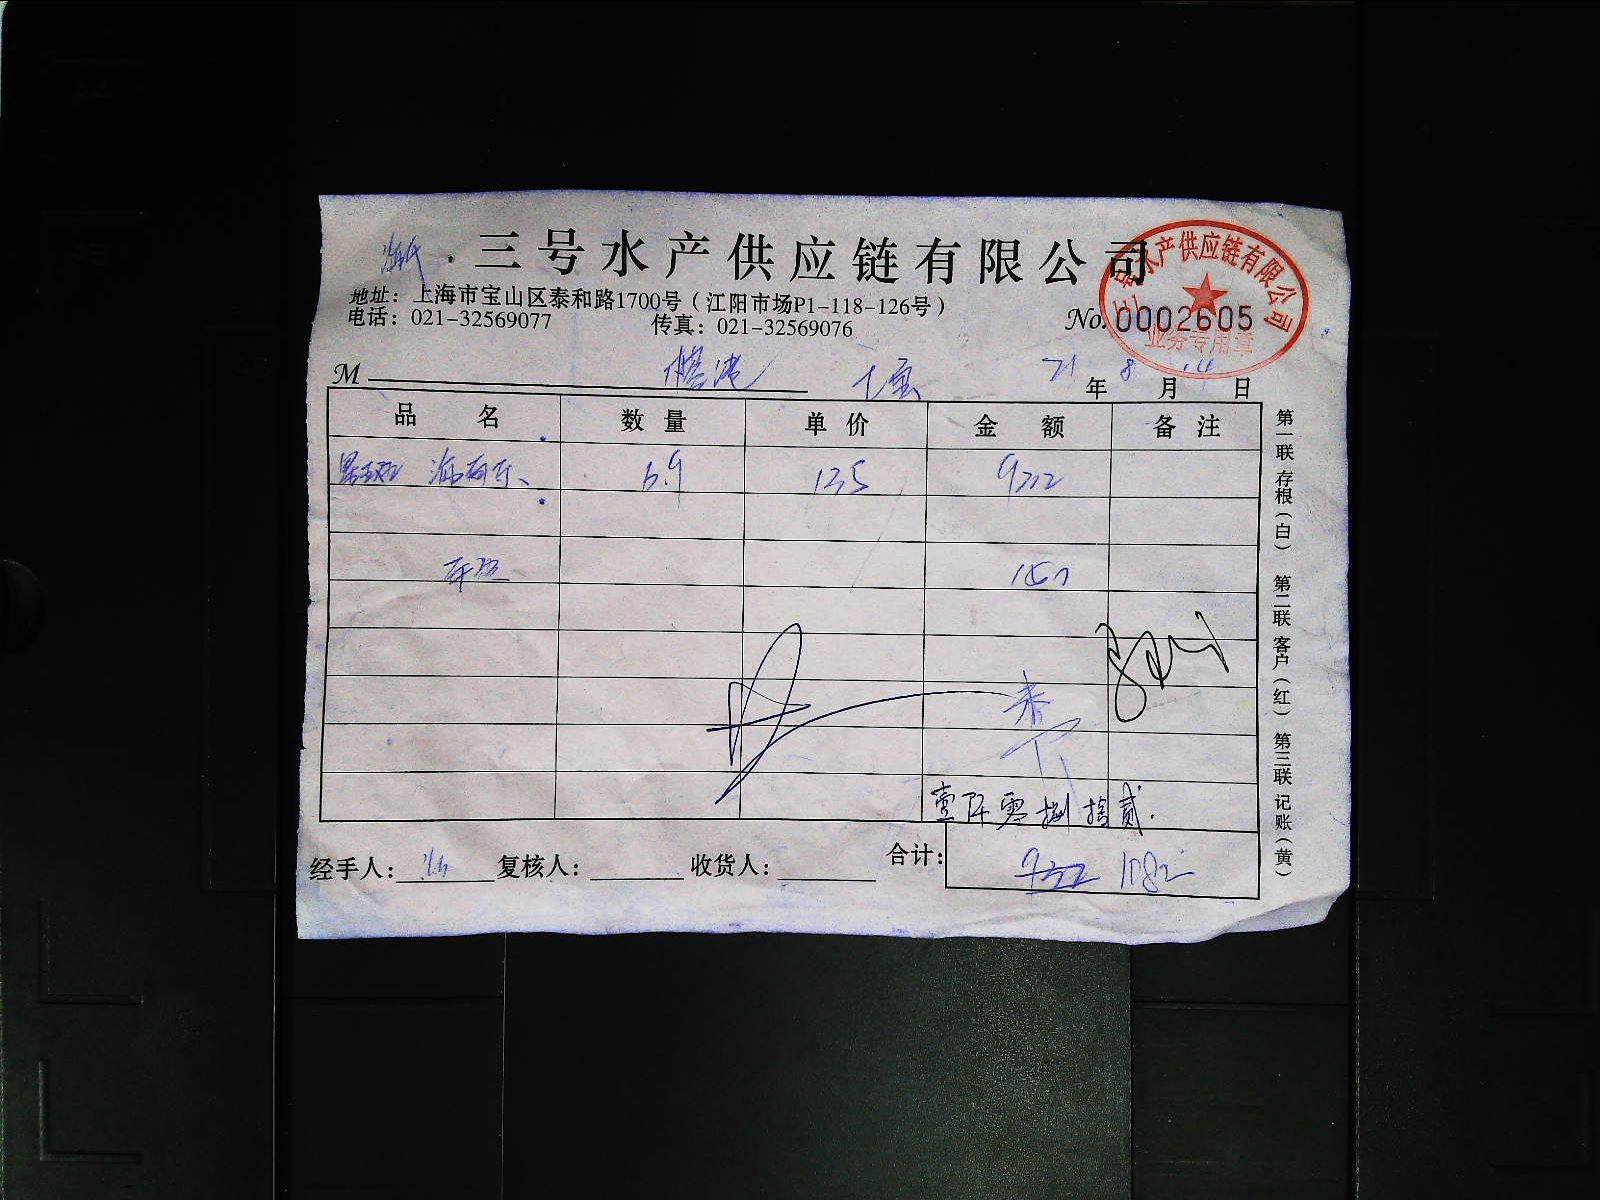 三号水产供应链有限公司
三号水产供应链有限公司
业务专用章
地址：上海市宝山区泰和路1700号（江阳市场P1-118-126号）
电话：021-32569077 传真：021-32569076 No.0002605
M 21年8月14日
品名 数量 单价 金额 备注
6.9 135 932
150
壹仟零捌拾贰.
经手人： 复核人： 收货人： 合计： 932 1082
第一联 存根（白） 第二联 客户（红） 第三联 记账（黄）